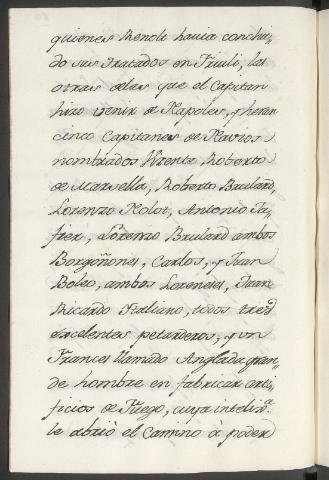 quienes Renolt havia conclui-
do sus tratados en Friuli, las
otras eelas que el Capitan
hizo venir de Napoles, y heran
cinco Capitanes de Navios
nombrados Vicente Roberto
de Marsella, Roberto Brulard,
Lorenzo Nolot, Antonio Ja-
fier, Lorenzo Brulard ambos
Borgoñones, Carlos, y Juan
Boleo, ambos Loreneses, Juan
Ricardo Italiano, todos tres
excelentes petarderos, y un
Frances llamado Anglada gran-
de hombre en fabricar arti-
ficios de Fuego, cuya intelig.ª
le abriò el Camino à poder